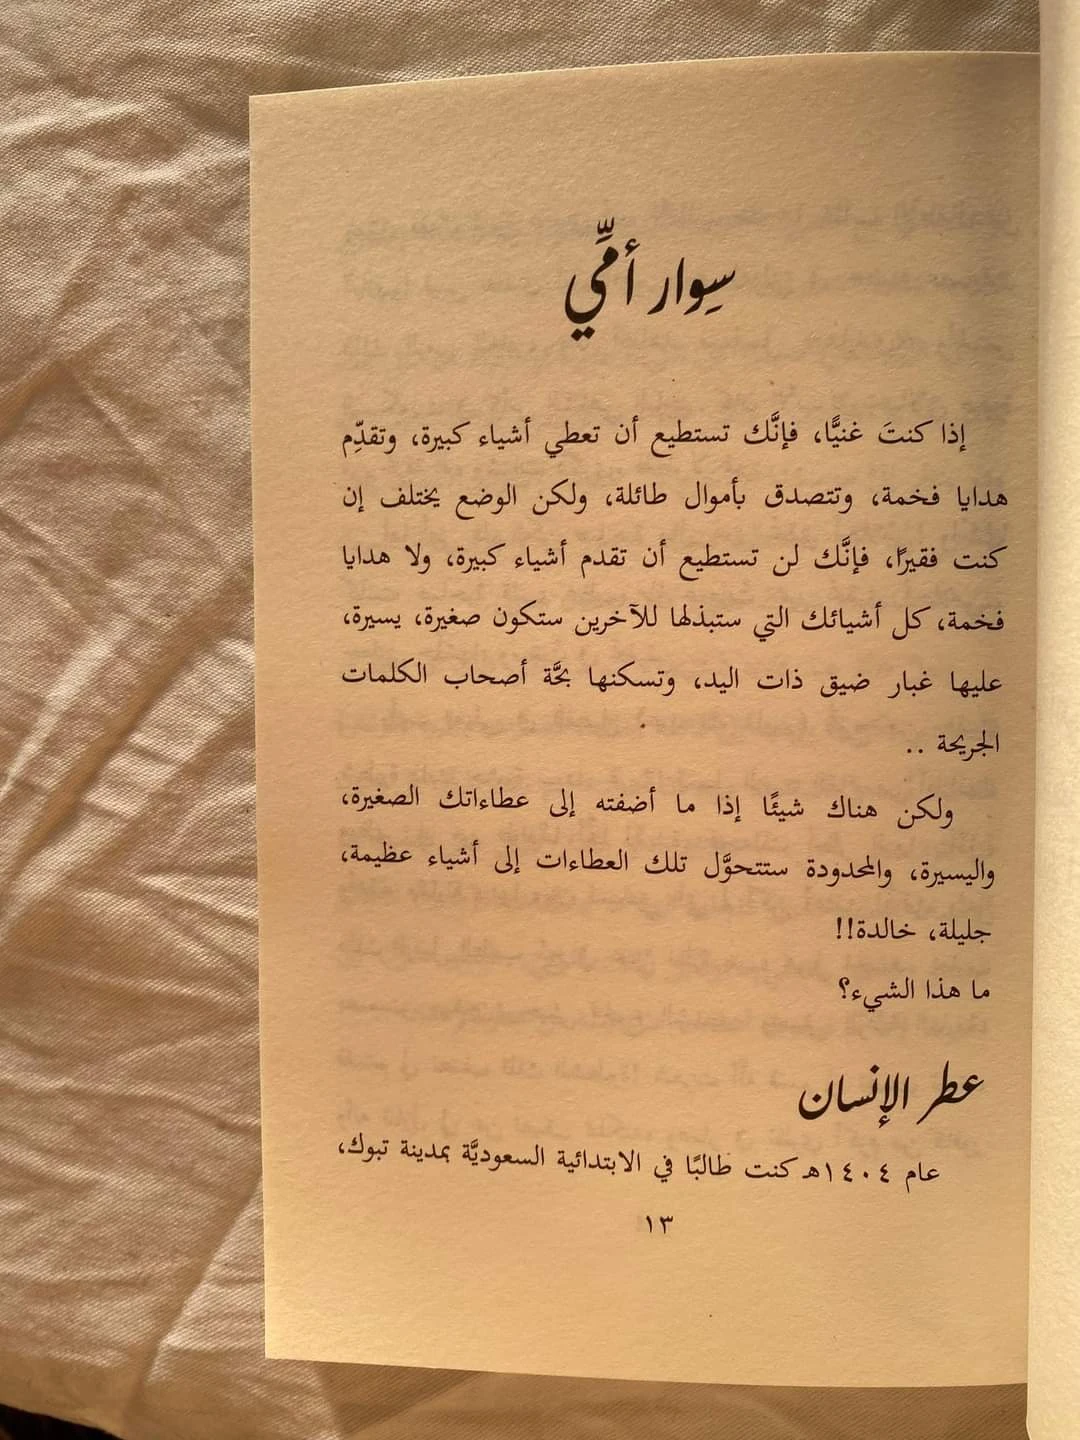 سِوار أمِّي
إذا كنتَ غنيًّا، فإنَّك تستطيع أن تعطي أشياء كبيرة، وتقدِّم
هدايا فخمة، وتتصدق بأموال طائلة، ولكن الوضع يختلف إن
كنت فقيرًا، فإنَّك لن تستطيع أن تقدم أشياء كبيرة، ولا هدايا
فخمة، كل أشيائك التي ستبذلها للآخرين ستكون صغيرة، يسيرة،
عليها غبار ضيق ذات اليد، وتسكنها بحَّة أصحاب الكلمات
الجريحة ..
ولكن هناك شيئًا إذا ما أضفته إلى عطاءاتك الصغيرة،
واليسيرة، والمحدودة ستتحوَّل تلك العطاءات إلى أشياء عظيمة،
جليلة، خالدة!!
ما هذا الشيء؟
عطر الإنسان
عام ١٤٠٤هـ كنت طالبًا في الابتدائية السعوديَّة بمدينة تبوك،
١٣